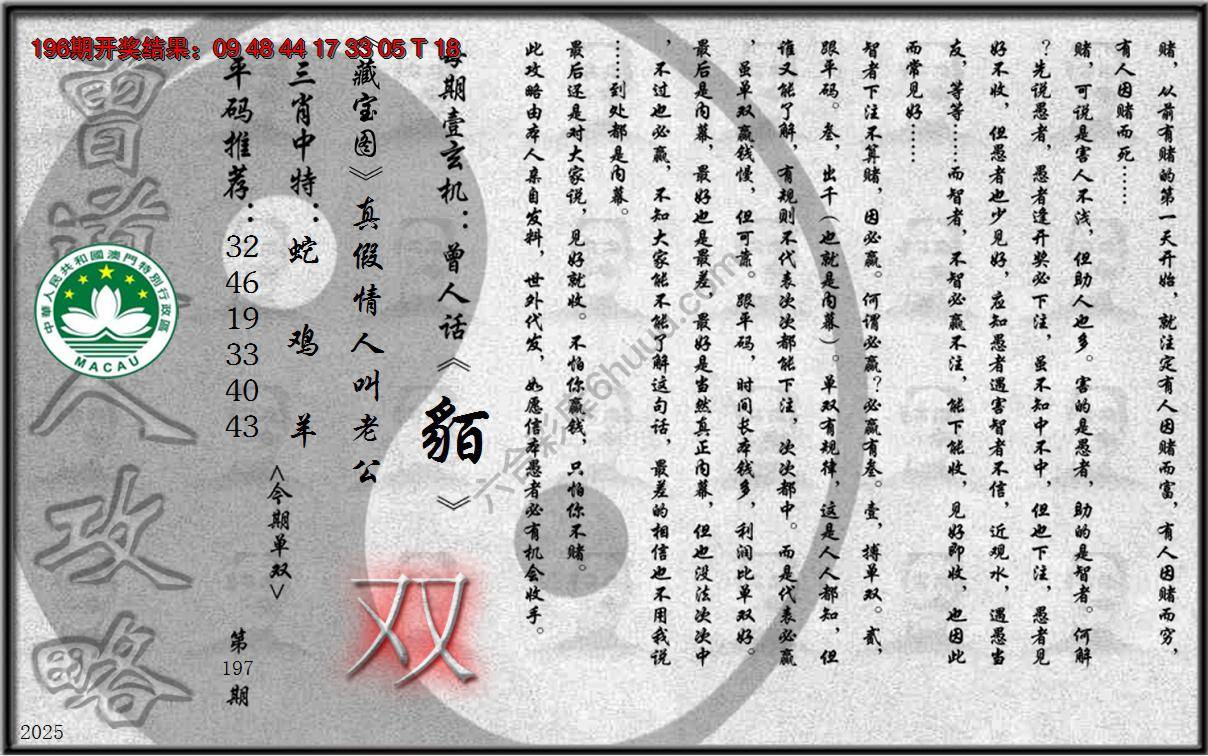 196期开奖结果：09 48 44 17 33 05 T 18
赌，从前有赌的第一天开始，就注定有人因赌而富，有人因赌而穷，
有人因赌而死……
赌，可说是害人不浅，但助人也多。害的是愚者，助的是智者。何解
？先说愚者，愚者逢开奖必下注，虽不知中不中，但也下注，愚者见
好不收，但愚者也少见好，应知愚者遇害智者不信，近观水，遇愚当
友，等等……而智者，不智必赢不注，能下能收，见好即收，也因此
而常见好……
智者下注不算赌，因必赢。何谓必赢？必赢有叁。壹，搏单双。贰，
跟平码。叁，出千（也就是内幕）。单双有规律，这是人人都知，但
谁又能了解，有规则不代表次次都能下注，次次都中。而是代表必赢
，虽单双赢钱慢，但可靠。跟平码，时间长本钱多，利润比单双好。
最后是内幕，最好也是最差，最好是当然真正内幕，但也没法次次中
，不过也必赢，不知大家能不能了解这句话，最差的相信也不用我说
……到处都是内幕。
最后还是对大家说，见好就收。不怕你赢钱，只怕你不赌。
此攻略由本人亲自发料，世外代发，如愿信本愚者必有机会收手。
每期壹玄机：曾人话《貊》
《藏宝图》真假情人叫老公
双
三肖中特：蛇 鸡 羊
<今期单双>
平码推荐：
32
46
19
33
40
43
第
197
期
曾道人攻略
中華人民共和國澳門特別行政區
MACAU
2025
六合彩库6huuu.com